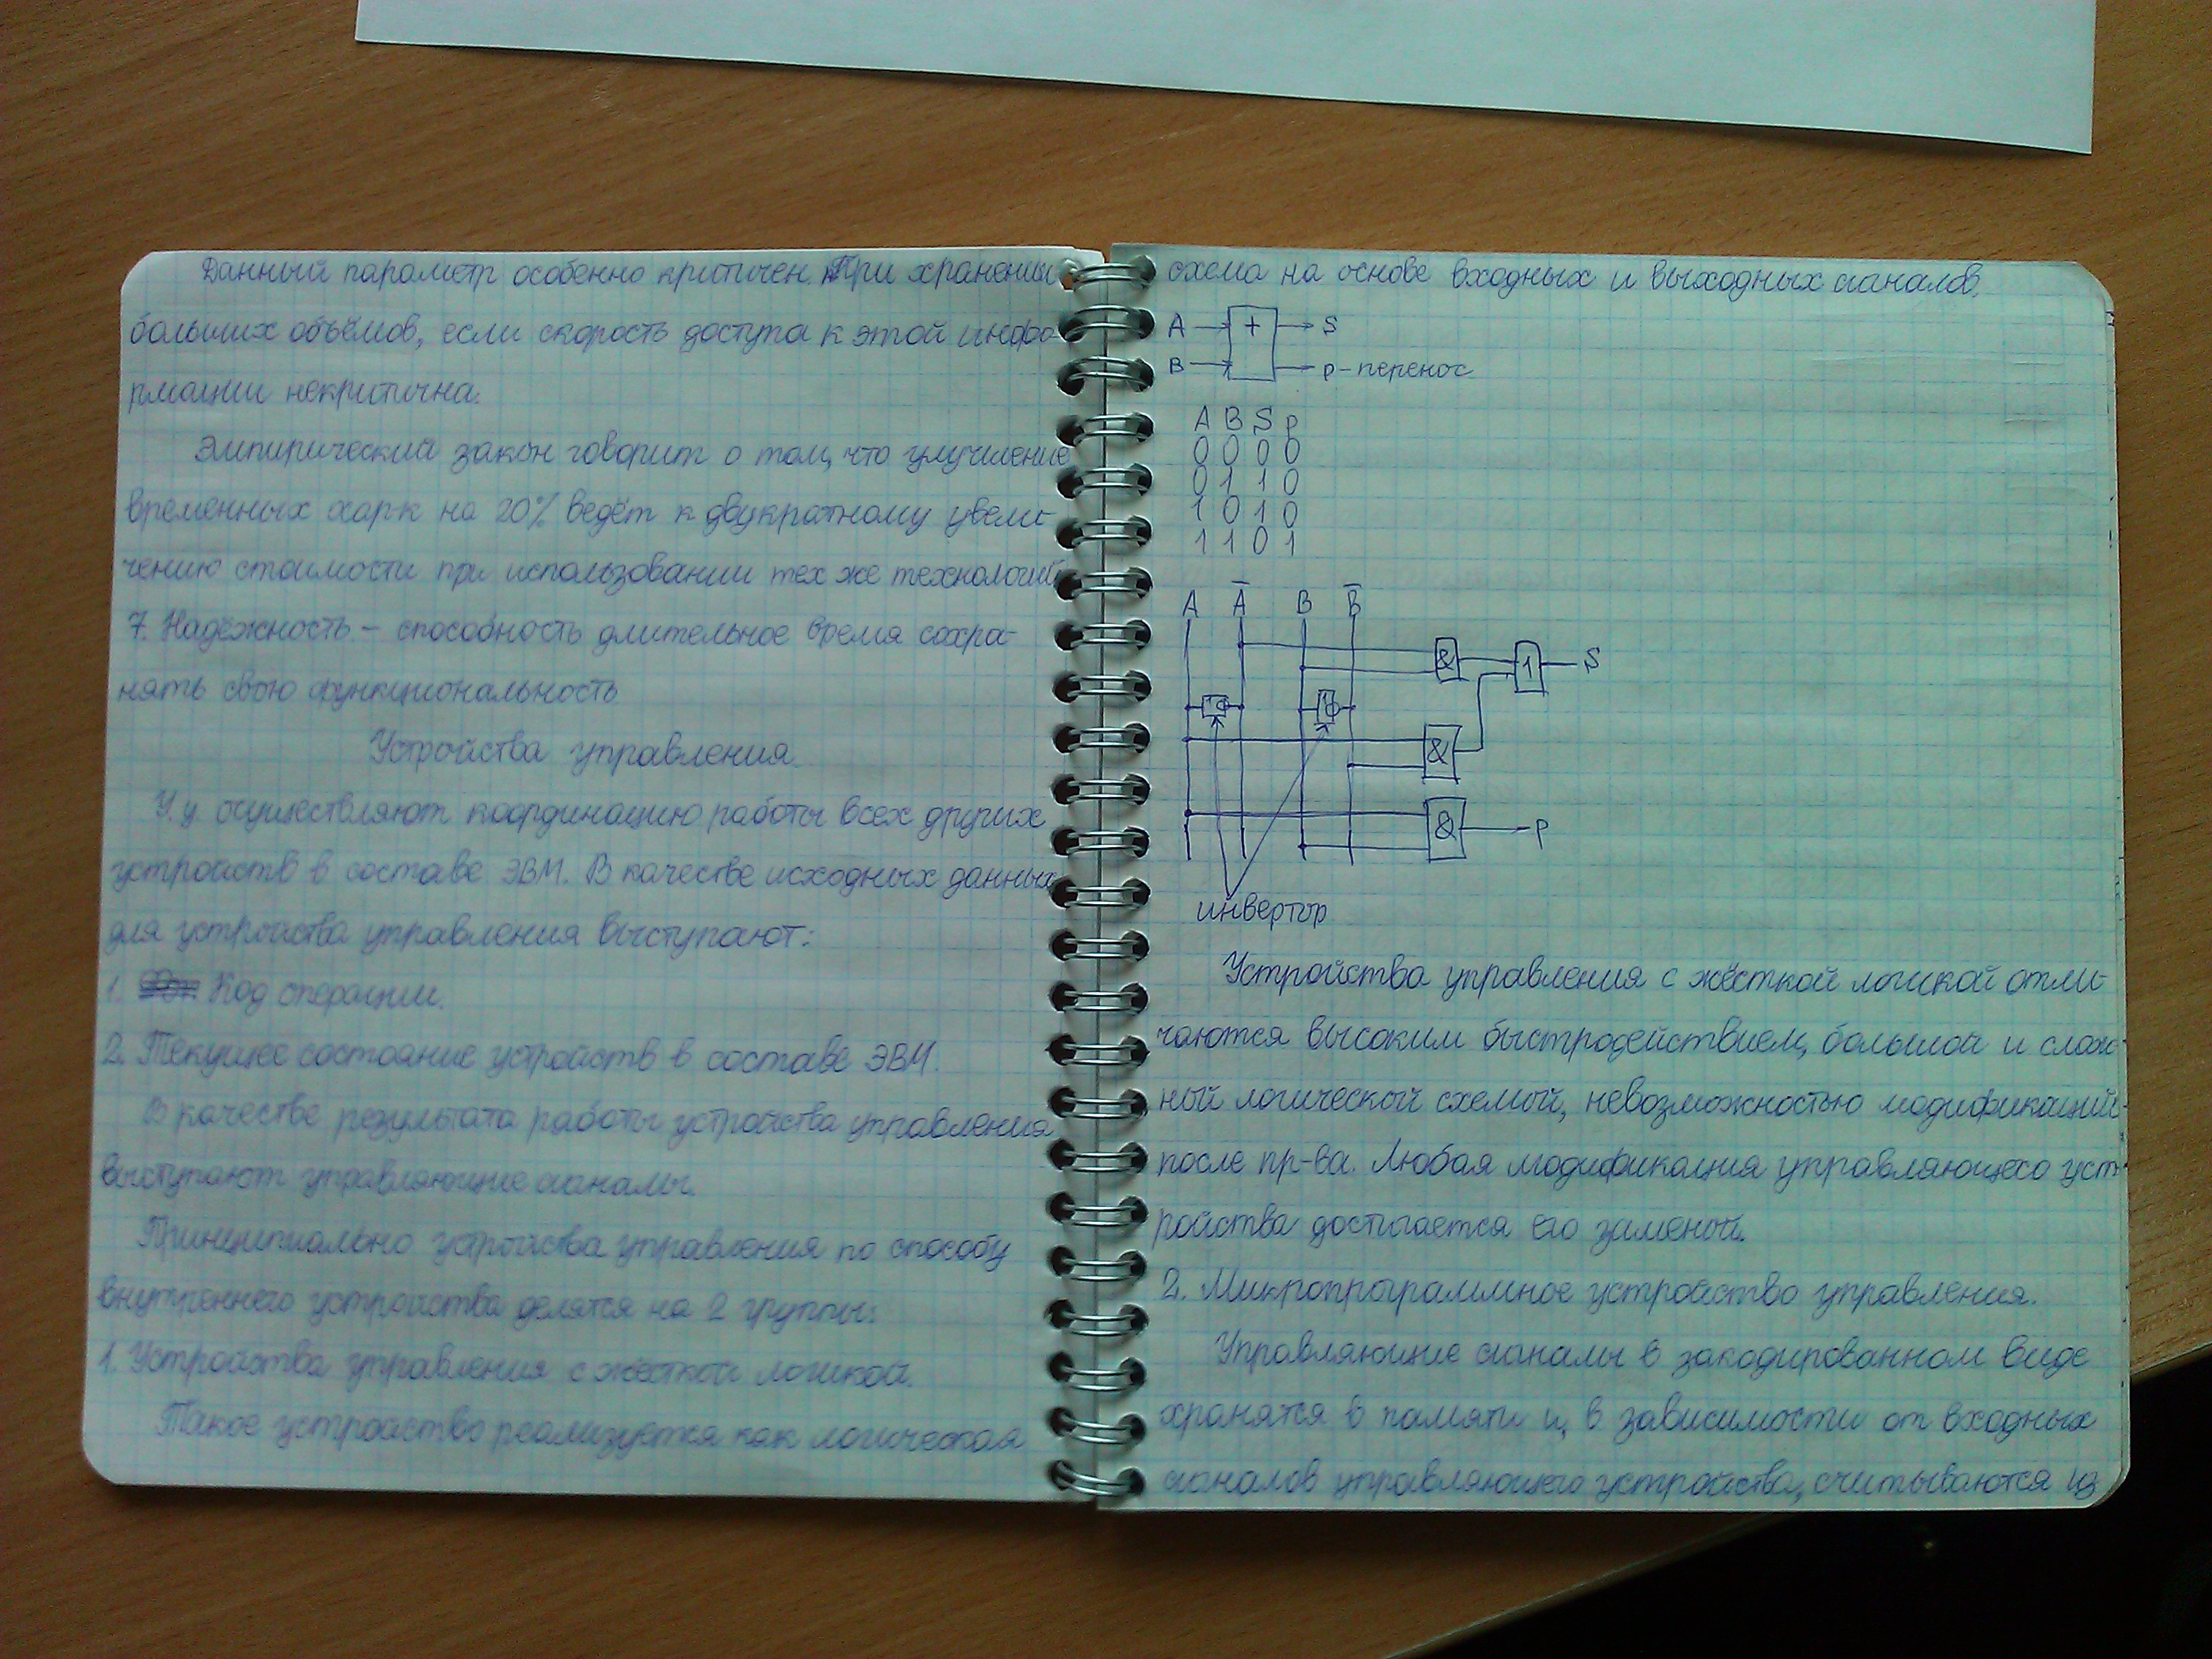 Данный параметр особенно критичен при хранении
больших объёмов, если скорость доступа к этой инфо-
рмации некритична.
Эмпирический закон говорит о том, что улучшение
временных хар-к на 20% ведёт к двукратному увели-
чению стоимости при использовании тех же технологий
7. Надёжность – способность длительное время сохра-
нять свою функциональность
Устройства управления
У.у. осуществляют координацию работы всех других
устройств в составе ЭВМ. В качестве исходных данных
для устройства управления выступают:
1. Код операции.
2. Текущее состояние устройств в составе ЭВМ.
В качестве результата работы устройства управления
выступают управляющие сигналы.
Принципиально устройства управления по способу
внутреннего устройства делятся на 2 группы:
1. Устройства управления с жёсткой логикой.
Такое устройство реализуется как логическая
схема на основе входных и выходных сигналов.
A + S
B p-перенос
A B S p
0 0 0 0
0 1 1 0
1 0 1 0
1 1 0 1
A A̅ B B̅
& 1 S
1 1
&
& p
инвертор
Устройства управления с жёсткой логикой отли-
чаются высоким быстродействием, большой и слож-
ной логической схемой, невозможностью модификаций
после пр-ва. Любая модификация управляющего уст-
ройства достигается его заменой.
2. Микропрограммное устройство управления.
Управляющие сигналы в закодированном виде
хранятся в памяти и, в зависимости от входных
сигналов управляющего устройства, считываются из